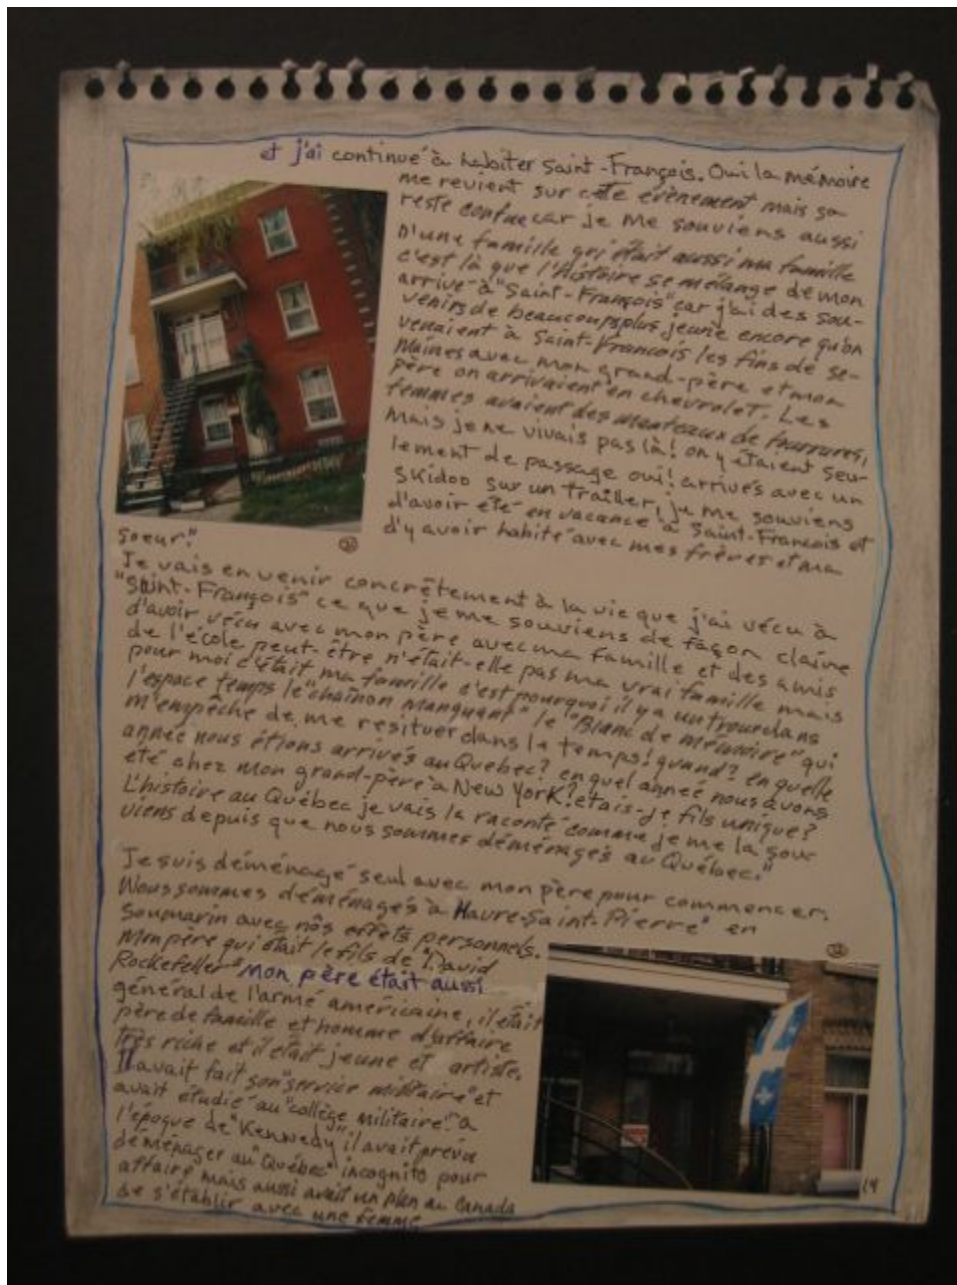 et j'ai continué à habiter Saint-François. Oui la mémoire
me revient sur cette évènement mais ça
reste confue car je me souviens aussi
D'une famille qui était aussi ma famille
c'est là que l'Histoire se mélange de mon
arrivé à "Saint-François" car j'ai des sou-
venirs de beaucoups plus jeune encore qu'on
venaient à Saint-François les fins de se-
maines avec mon grand-père et mon
père on arrivaient en chevrolet. Les
femmes avaient des manteaux de fourrures,
mais je ne vivais pas là! on y étaient seu-
lement de passage oui! arrivés avec un
skidoo sur un trailler, je me souviens
d'avoir été en vacance à Saint-François et
d'y avoir habité avec mes frères et ma
soeur."
Je vais en venir concrêtement à la vie que j'ai vécu à
"Saint-François" ce que je me souviens de façon claire
d'avoir vécu avec mon père avec ma famille et des amis
de l'école peut-être n'était-elle pas ma vrai famille mais
pour moi c'était ma famille c'est pourquoi il y a un trou dans
l'espace temps le "chaînon manquant" le "Blanc de mémoire" qui
m'empêche de me resituer dans le temps! quand? en quelle
année nous étions arrivés au Québec? en quel année nous avons
été chez mon grand-père à New York? étais-je fils unique?
L'histoire au Québec je vais la raconté comme je me la sou-
viens depuis que nous sommes déménagés au Québec."
Je suis déménagé seul avec mon père pour commencer.
Nous sommes déménagés à Havre-Saint-Pierre" en
Soumarin avec nôs effets personnels.
Mon père qui était le fils de "David
Rockefeller" mon père était aussi
général de l'armé américaine, il était
père de famille et homme d'affaire
très riche et il était jeune et artiste.
Il avait fait son "service militaire" et
avait étudié au "collège militaire" à
l'époque de "Kennedy" il avait prévu
déménager au "Québec" incognito pour
affaire mais aussi avait un plan au Canada
de s'établir avec une femme
14